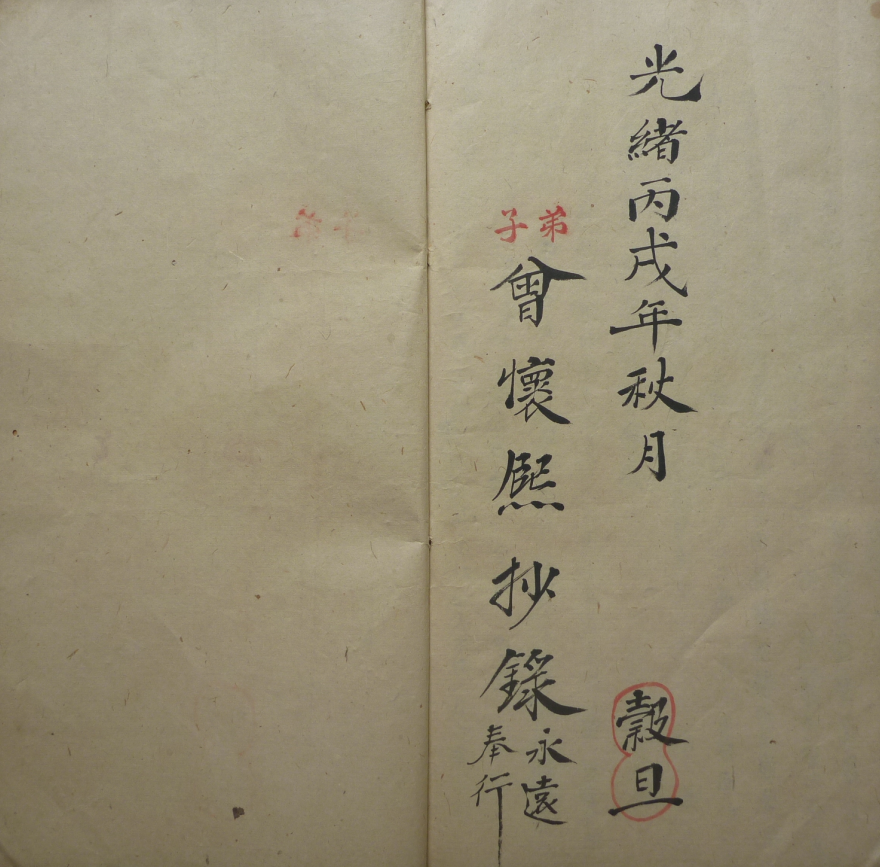 光緒丙戌年秋月 穀旦
弟子曾懷熙抄錄
永遠
奉行